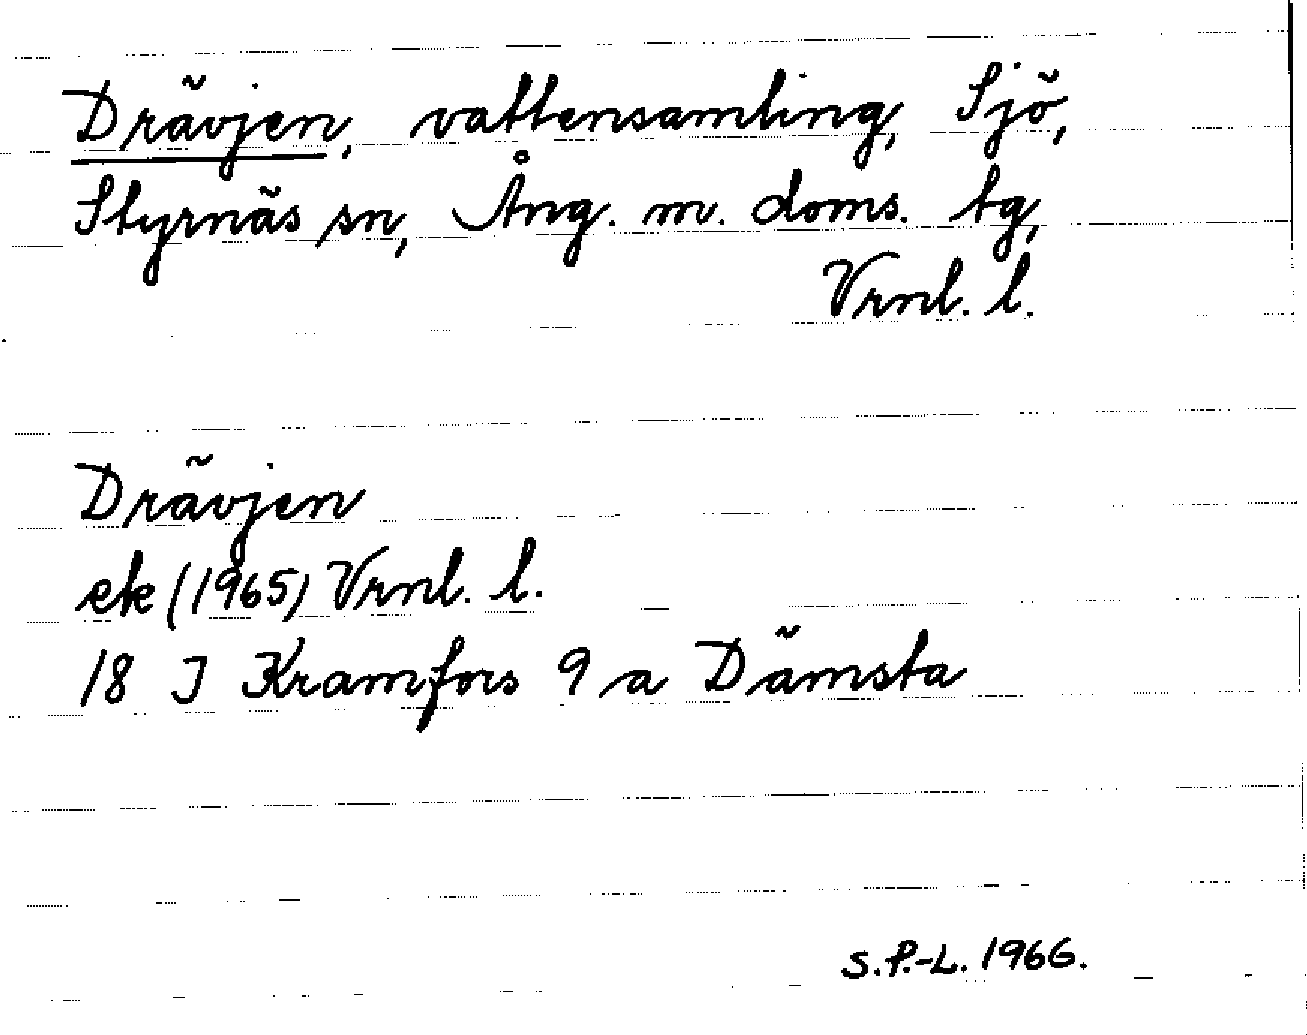 Drävjen, vattensamling, Sjö,
Styrnäs sn, Ång. m. doms. tg,
Vrnl. l.
Drävjen
ek (1965) Vrnl. l.
18 J Kramfors 9 a Dämsta
S.P.-L. 1966.